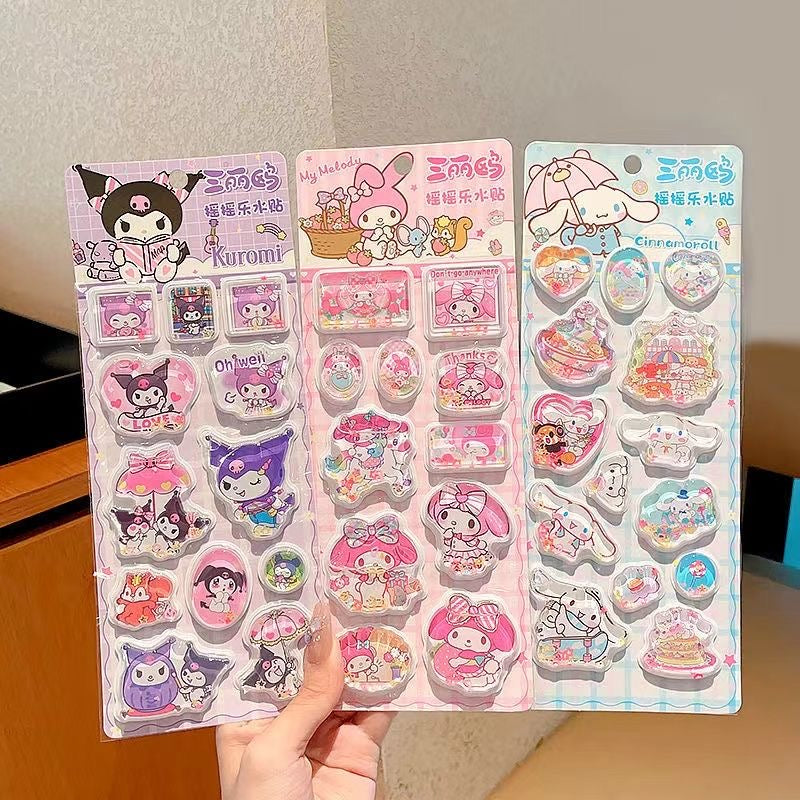 三丽鸥
摇摇乐水贴
Kuromi
Oh well
LOVE
My Melody
三丽鸥
摇摇乐水贴
Don't go anywhere
Thanks
三丽鸥
摇摇乐水贴
Cinnamoroll